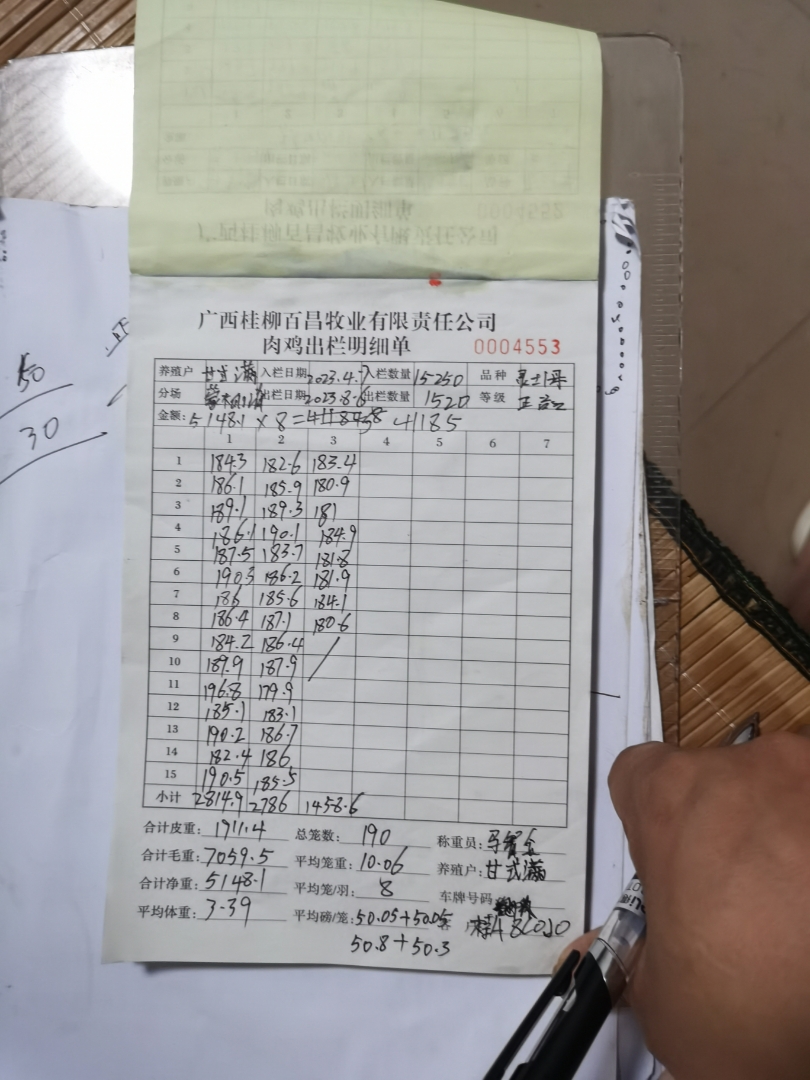 50
30
广西桂柳百昌牧业有限责任公司
肉鸡出栏明细单 0004553
养殖户 甘式满 入栏日期 2023.4.7 入栏数量 15250 品种
分场 出栏日期 2023.8.6 出栏数量 1520 等级
金额: 5148.1 × 8 = 41185
1 2 3 4 5 6 7
1 184.3 182.6 183.4
2 186.1 185.9 180.9
3 189.1 189.3 181
4 186.1 190.1 184.9
5 187.5 183.7 181.8
6 190.3 186.2 181.9
7 186 185.6 184.1
8 186.4 187.1 180.6
9 184.2 186.4
10 189.9 187.9
11 196.8 179.9
12 185.1 183.1
13 190.2 186.7
14 182.4 186
15 190.5 185.5
小计 2814.9 2786 1458.6
合计皮重: 1911.4 总笼数: 190 称重员:
合计毛重: 7059.5 平均笼重: 10.06 养殖户: 甘式满
合计净重: 5148.1 平均笼/羽: 8 车牌号码
平均体重: 3.39 平均磅/笼: 50.05+50.05 客
50.8+50.3